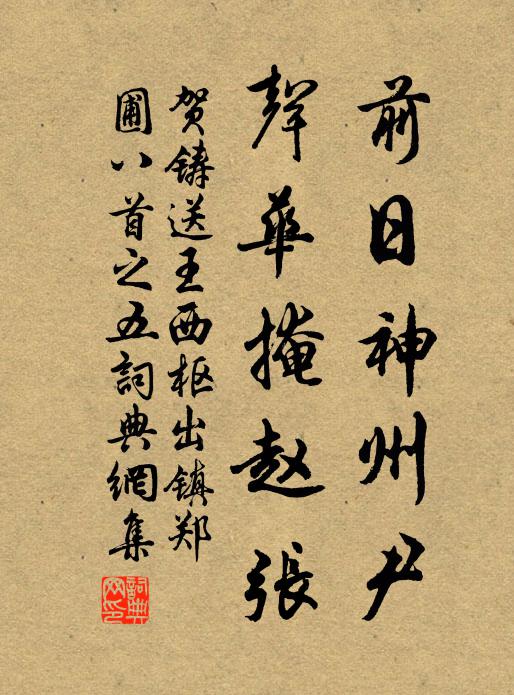 前日神州尹
聲華掩赵張
贺鋳送王西枢出镇郑
圃八首之五詞典網集
詞典网印